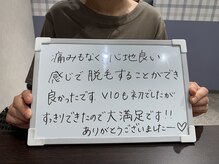 痛みもなく心地良い
感じで脱毛することができ
良かったです VIOも初でしたが
すっきりできたので大満足です!!
ありがとうございました―♡